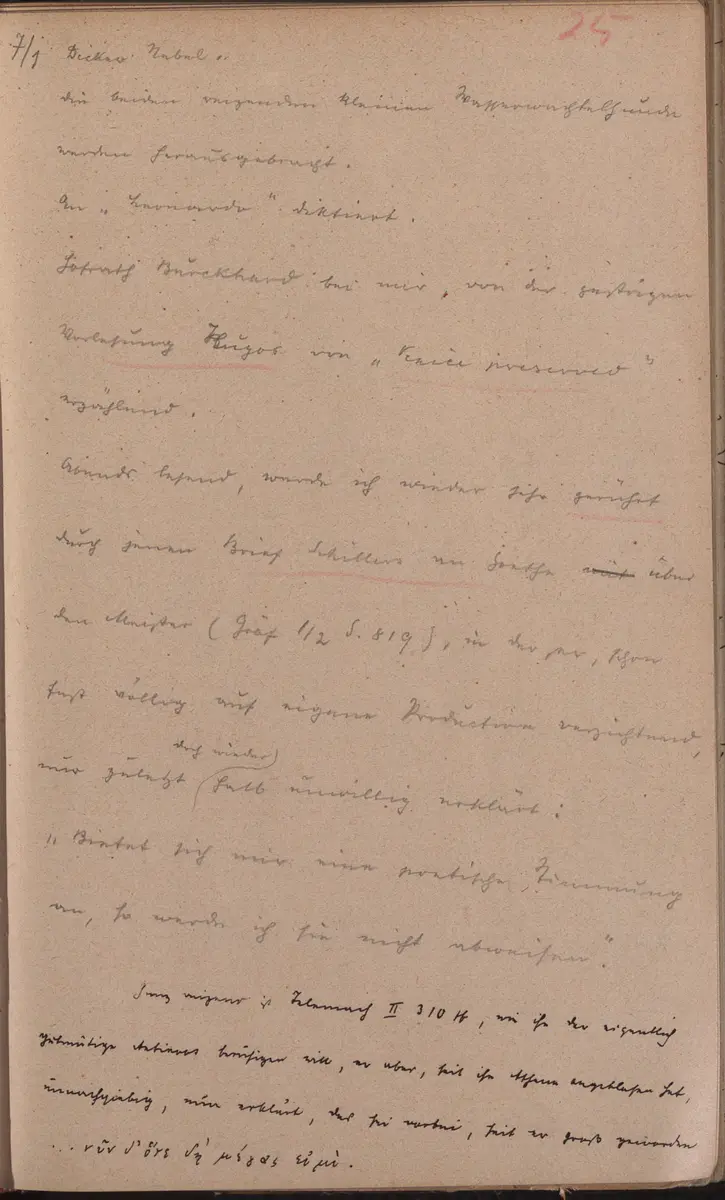 25
7/1 Dicker Nebel..
die beiden reizenden kleinen Wasserwachtelhunde
werden herausgebracht.
An „Leonardo" diktiert.
Hofrath Burckhard bei mir, von der gestrigen
Vorlesung Hugos von „Venice preserved"
erzählend.
Abends lesend, wurde ich wieder sehr gerührt
durch jenen Brief Schillers an Goethe über
den Meister (Gräf 1/2 S. 819), in der er, schon
fast völlig auf eigene Production verzichtend,
doch wieder
nur zuletzt halb unwillig erklärt:
„Bietet sich mir eine poetische Stimmung
an, so werde ich sie nicht abweisen".
Ganz reizend ist Telemach II 310 ff, wie ihn der eigentlich
gutmütige Antinoos beruhigen will, er aber, seit ihn Athene angeblasen hat,
unnachgiebig, nun erklärt, das sei vorbei, seit er groß geworden
... νῦν δ' ὅτε δὴ μέγας εἰμὶ.